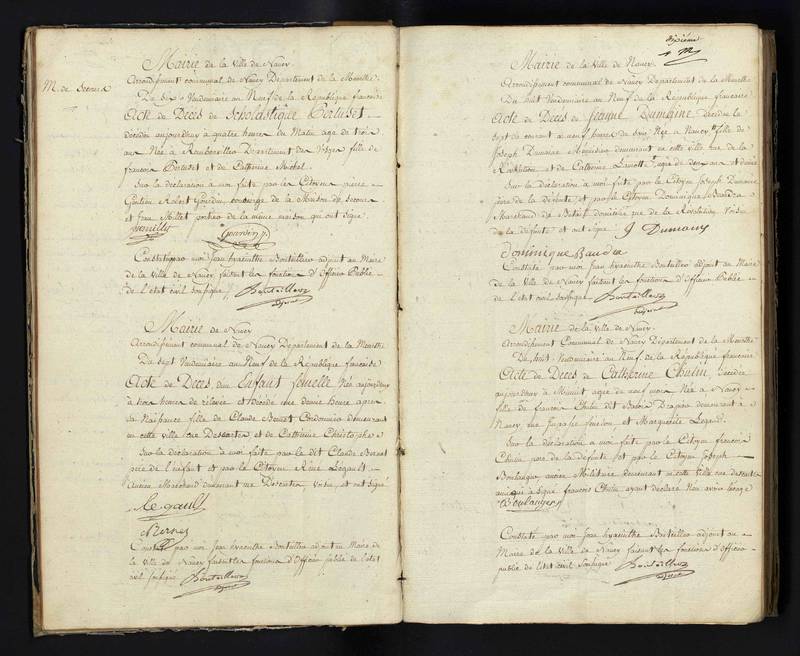 M. de Secours
Mairie de la Ville de Nancy
Arrondissement communal de Nancy Département de la Meurthe
Du Vendemiaire an Neuf de la République francaise
Acte de Deces de Scholastique
décédée aujourdhuy à quatre heures du Matin age de trois
ans Née à Département des Vosges fille de
francois et de Catherine Michel
Sur la déclaration à moi faite par les Citoyens pierre
Gentien Robert Gourdin concierge de la Maison de secours
et fran Millet portier de la même maison qui ont signé
Constaté par moi Jean hyacinthe Boutaillier adjoint au Maire
de la Ville de Nancy faisant les fonctions d'Officier Public
de l'état civil soussigné Boutaillier
adjoint
Mairie de Nancy
Arrondissement communal de Nancy Département de la Meurthe
Du Sept Vendemiaire an Neuf de la République francaise
Acte de Deces d'un Enfant femelle Née aujourdhuy
à trois heures de relevée et décédée une demie heure apres
sa Naissance fille de Claude Cordonnier demeurant
en cette ville rue Descartes et de Catherine Christophe
Sur la déclaration à moi faite par le dit Claude
pere de l'enfant et par le Citoyen Rémi Legault
Ancien Marchand demeurant rue Descartes, Voisin, et ont signé
Le gault
Constaté par moi Jean hyacinthe Boutaillier adjoint au Maire de
la Ville de Nancy faisant les fonctions d'Officier public de l'état
civil soussigné Boutaillier
adjoint
Mairie de la Ville de Nancy
Arrondissement communal de Nancy Département de la Meurthe
Du huit Vendemiaire an Neuf de la République francaise
Acte de Deces de Jeanne Dumaine décédée le
Sept du courant à neuf heures du soir Née à Nancy fille de
Joseph Dumaine Menuisier demeurant en cette ville rue de la
Révolution et de Catherine agée de deux ans et demie
Sur la déclaration à moi faite par le Citoyen Joseph Dumaine
pere de la défunte et par le Citoyen Dominique Baudra
Marchand de domicilié rue de la Révolution Voisin
de la défunte et ont signé J Dumany
Dominique Baudra
Constaté par moi Jean hyacinthe Boutaillier adjoint au Maire
de la Ville de Nancy faisant les fonctions d'Officier Public
de l'état civil soussigné Boutaillier
adjoint
Mairie de la Ville de Nancy
Arrondissement Communal de Nancy Département de la Meurthe
Du huit Vendemiaire an Neuf de la République francaise
Acte de Deces de Catherine Chulin Décédée
aujourdhuy à Minuit agée de neuf mois Née à Nancy
fille de francois Chulin dit Drapier demeurant à
Nancy rue et Marguerite Legand
Sur la déclaration à moi faite par le Citoyen francois
Chulin pere de la défunte et par le Citoyen Joseph
Boulanger ancien Militaire demeurant en cette Ville rue
a signé francois Chulin ayant déclaré n'en avoir l'usage
Boulanger
Constaté par moi Jean hyacinthe Boutaillier adjoint au
Maire de la Ville de Nancy faisant les fonctions d'Officier
public de l'état civil soussigné Boutaillier
adjoint